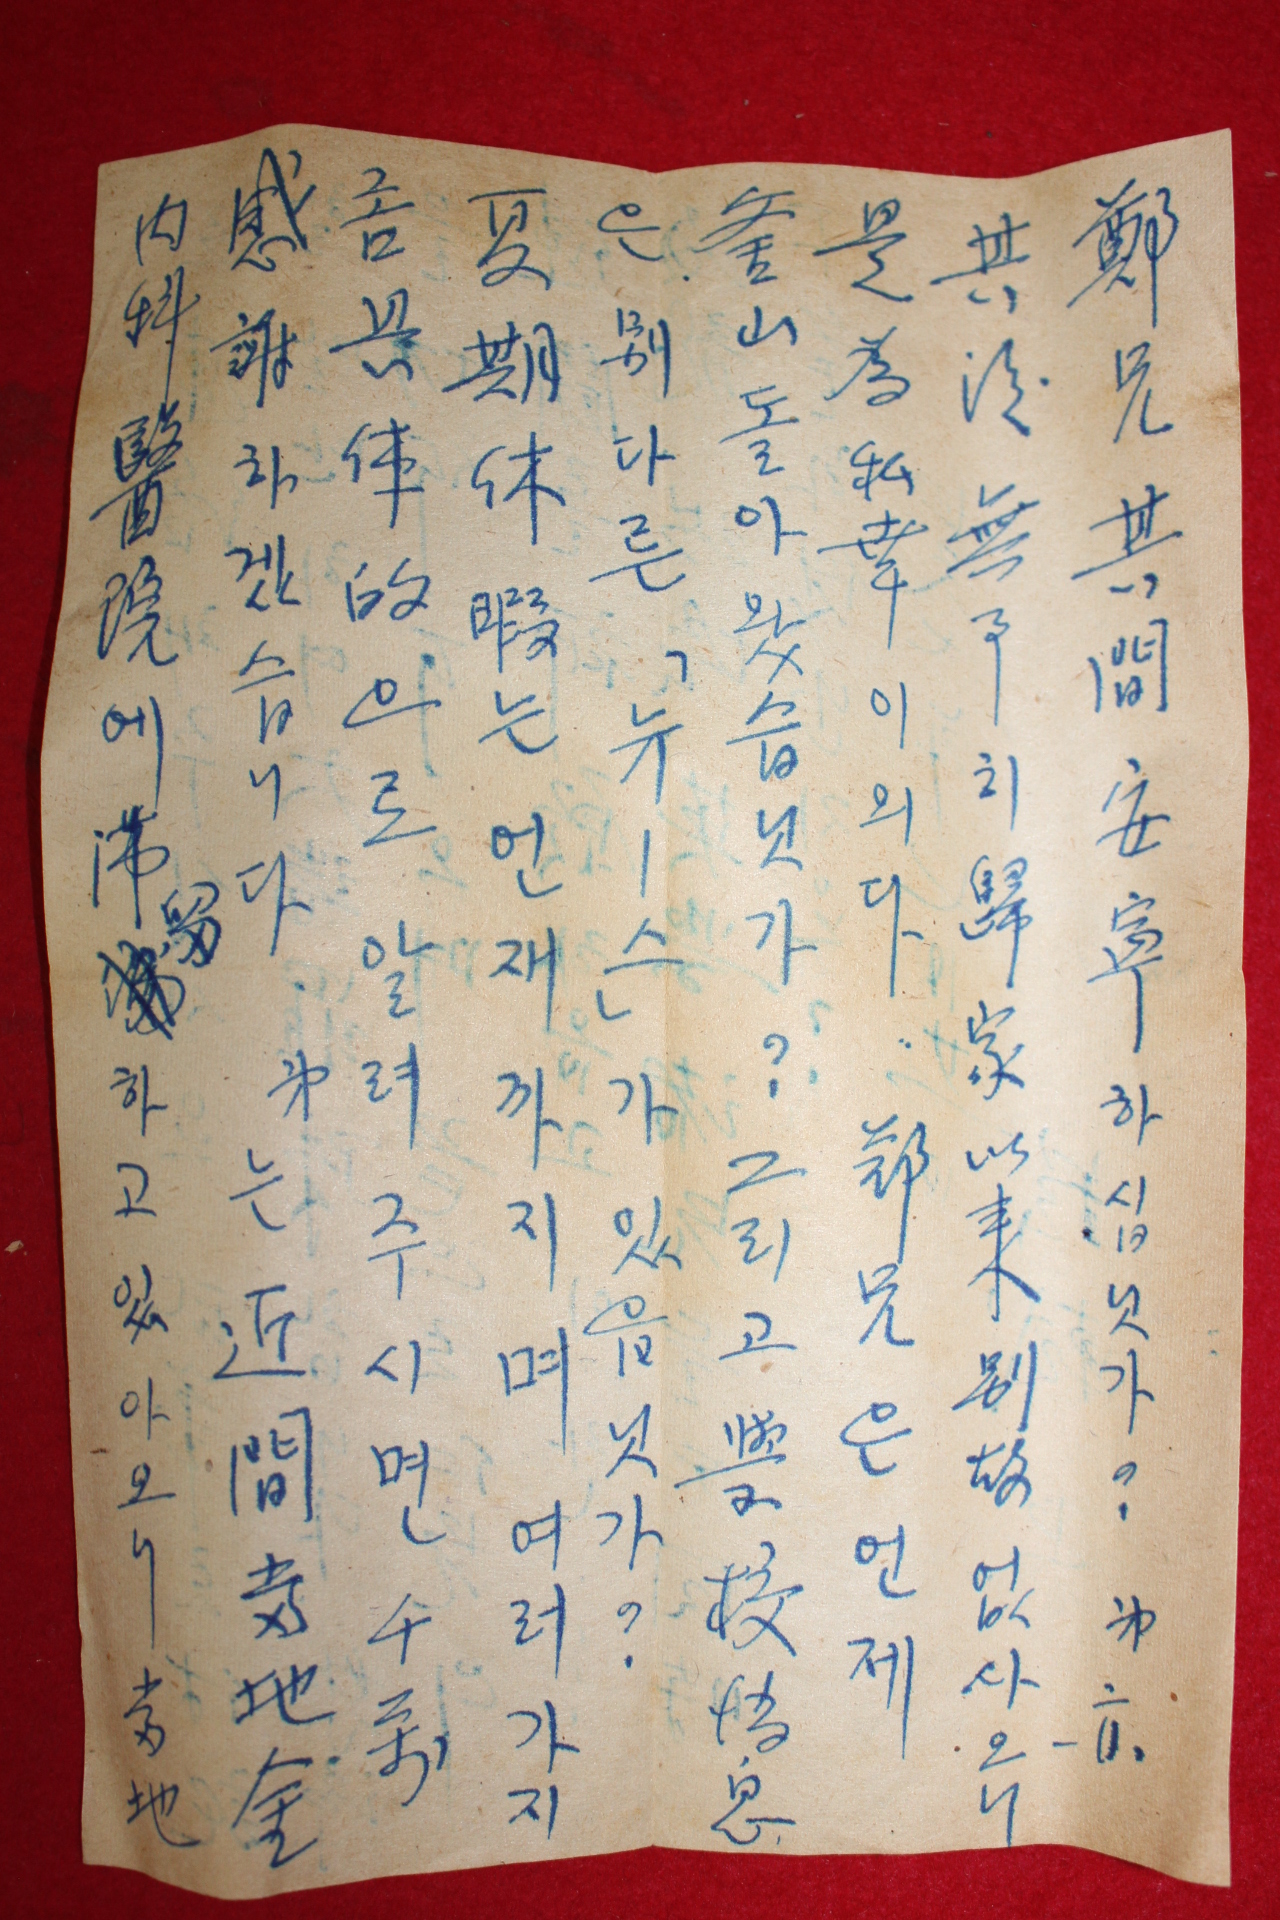 鄭兄 其間 安寧하십닛가? 弟亦
其後 無事히 歸家以来 別故없사오니
是為私幸이외다. 鄭兄은 언제
釜山 돌아왔습닛가? 그리고 學校 情息
은 別다른 「뉴ー스」가 있읍닛가?
夏期休暇는 언재까지며 여러가지
로 具体的으로 알려주시면 千萬
感謝하겠습니다 弟는 近間 當地 金
内科醫院에 滞留하고 있아오니 當地